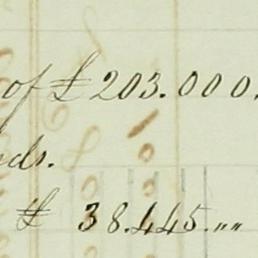 of £ 203.000.
ds.
£ 38.445.""